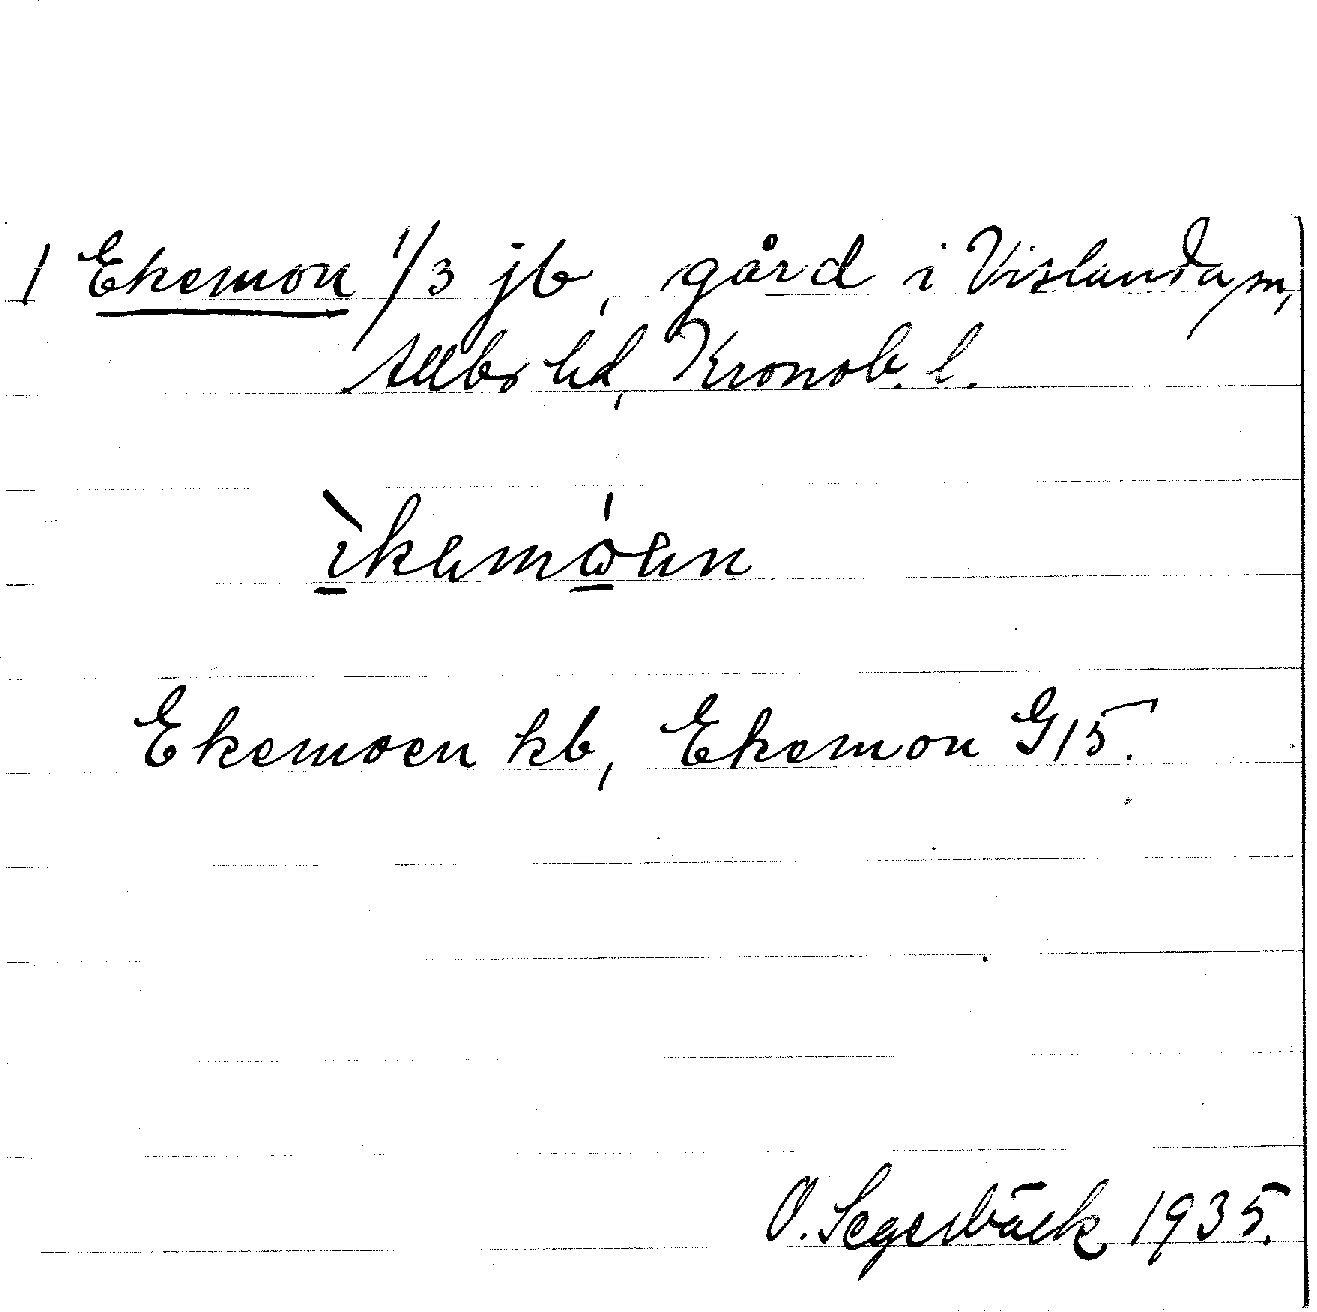 1 Ekemon 1/3 jb, gård i Vislanda sn,
Allbo hd, Kronob. l.
Ekemoen kb, Ekemon G15.
O. Segerbäck 1935.